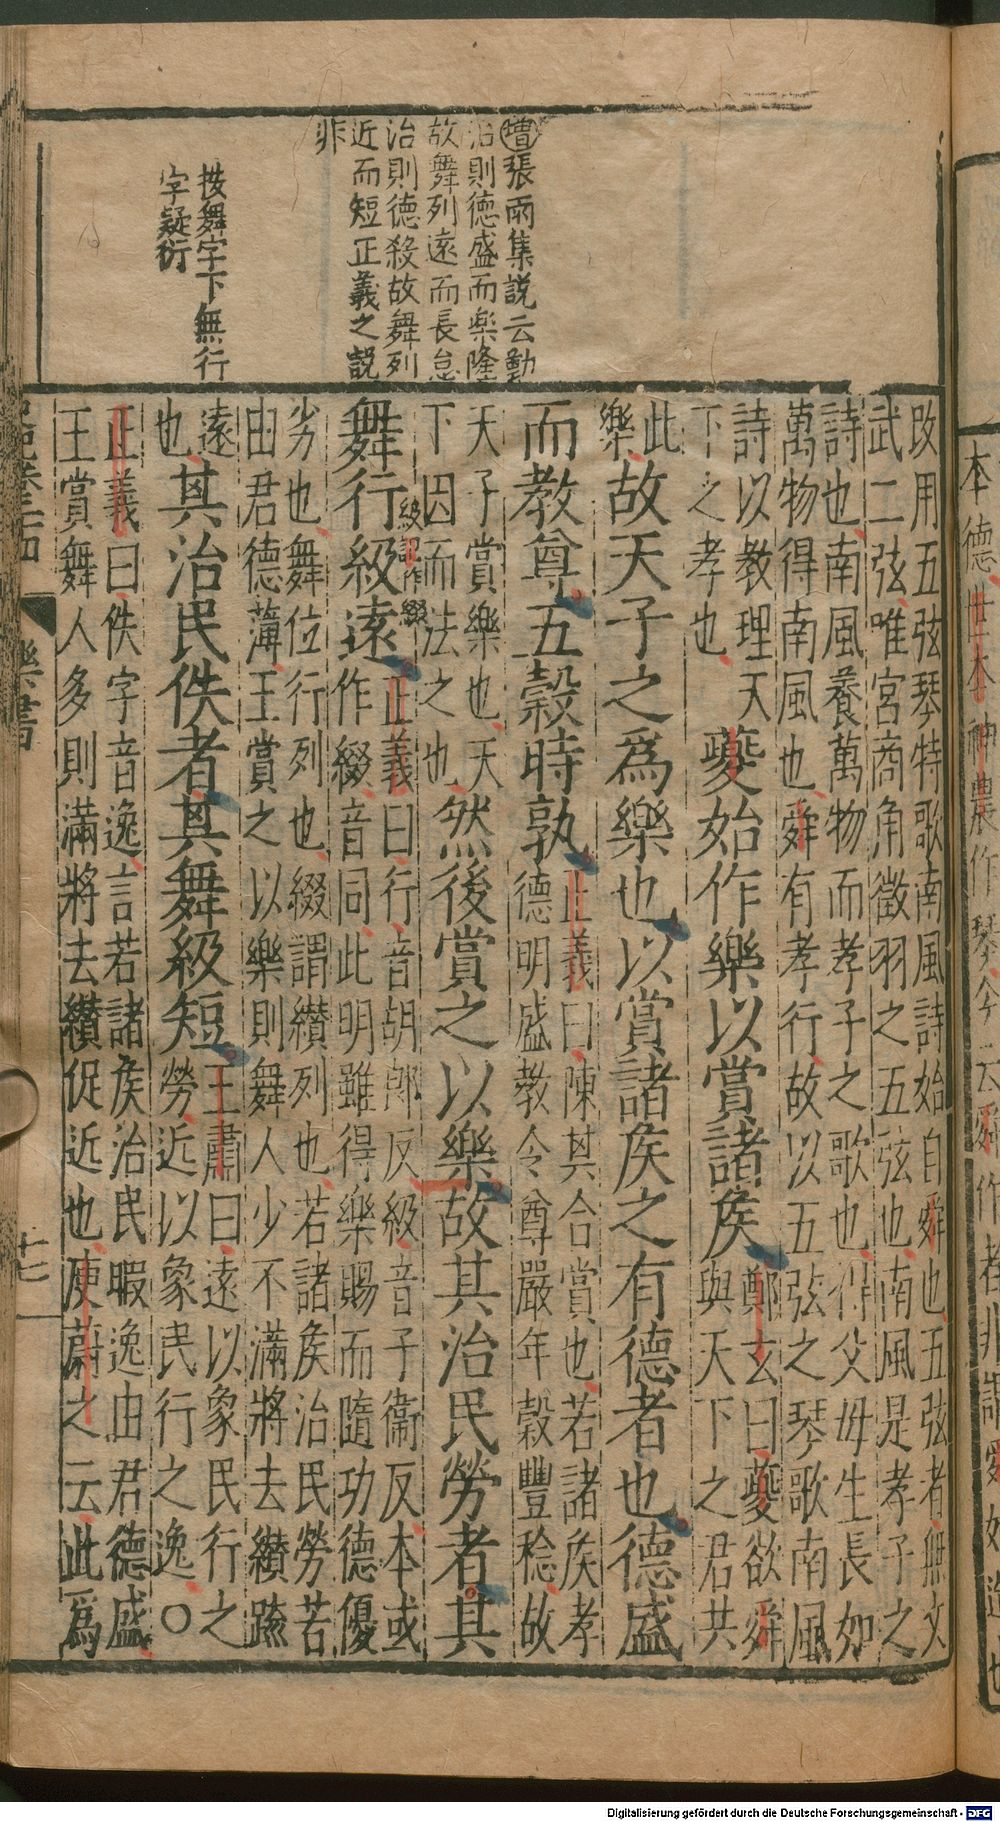 増張雨集説云勤
治則德盛而楽隆
故舞列遠而長怠
治則德殺故舞列
近而短正義之説
非
按舞字下無行
字疑衍
改用五弦琴特歌南風詩始自舜也五弦者無文
武二弦唯宮商角徵羽之五弦也南風是孝子之
詩也南風養萬物而孝子之歌也得父母生長如
萬物得南風也舜有孝行故以五弦之琴歌南風
詩以教理天
下之孝也
夔始作樂以賞諸侯
鄭玄曰夔欲舜
與天下之君共
此
樂
故天子之為樂也以賞諸侯之有德者也德盛
而教尊五穀時孰
正義曰陳其合賞也若諸侯孝
德明盛教令尊嚴年穀豐稔故
天子賞樂也天
下因而法之也
然後賞之以樂故其治民勞者其
舞行級遠
級記作綴
正義曰行音胡郎反級音子衞反本或
作綴音同此明雖得樂賜而隨功德優
劣也舞位行列也綴謂纉列也若諸侯治民勞若
由君德薄王賞之以樂則舞人少不滿將去纉踈
遠
也
其治民佚者其舞級短
王肅曰遠以象民行之
勞近以象民行之逸〇
正義曰佚字音逸言若諸侯治民暇逸由君德盛
王賞舞人多則滿將去纉促近也庾蔚之云此為
樂書
十七
Digitalisierung gefördert durch die Deutsche Forschungsgemeinschaft - DFG